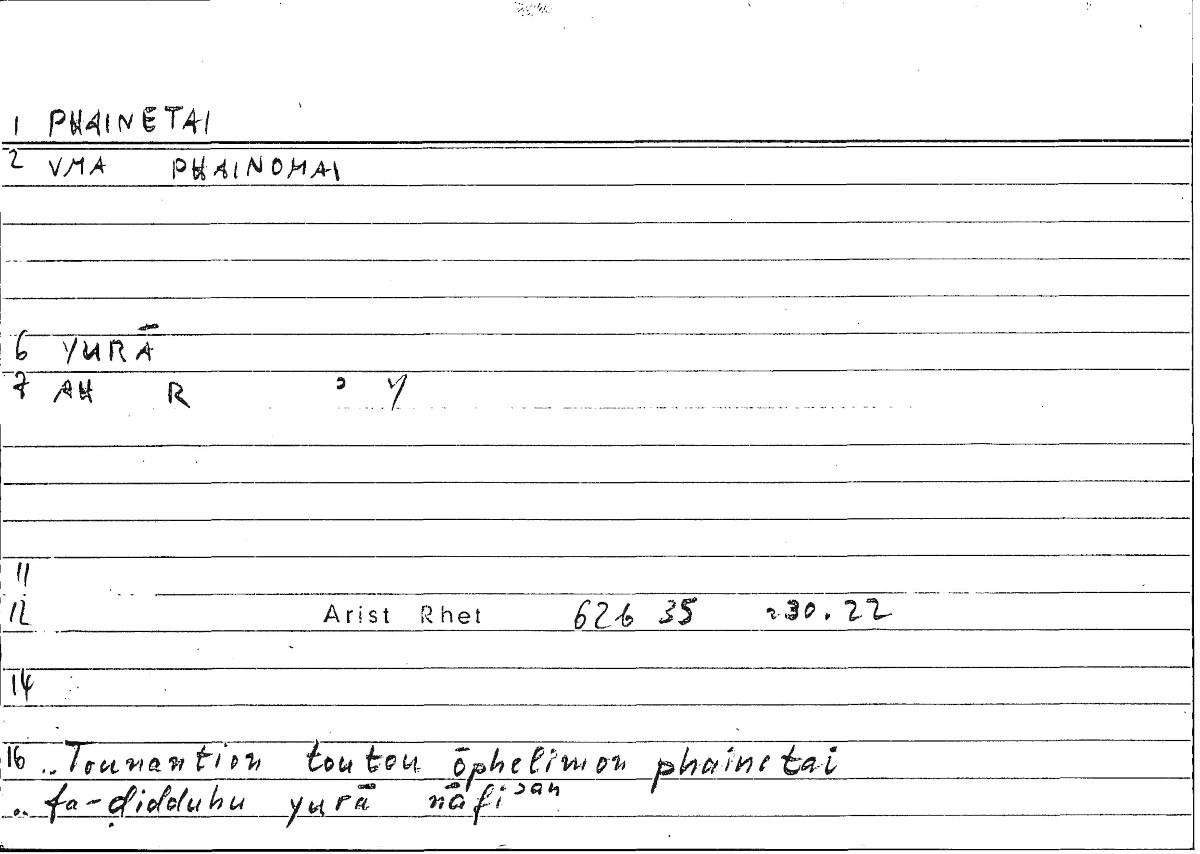 1 PHAINETAI
2 VMA PHAINOMAI
6 YURĀ
7 AH R ʾ Y
11
12 Arist Rhet 62b 35 :30.22
14
16 .. Tounantion toutou ōphelimon phainetai
.. fa-ḍidduhu yurā nāfiʿan